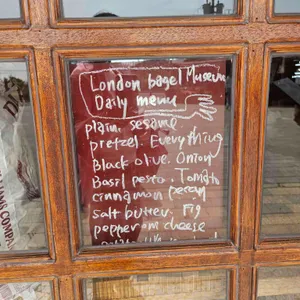 London bagel Museum
Daily menu
plain. sesame
pretzel. Everything
Black olive. Onion
Basil pesto. Tomato
cinnamon pecan
salt butter. Fig
pepperoni cheese